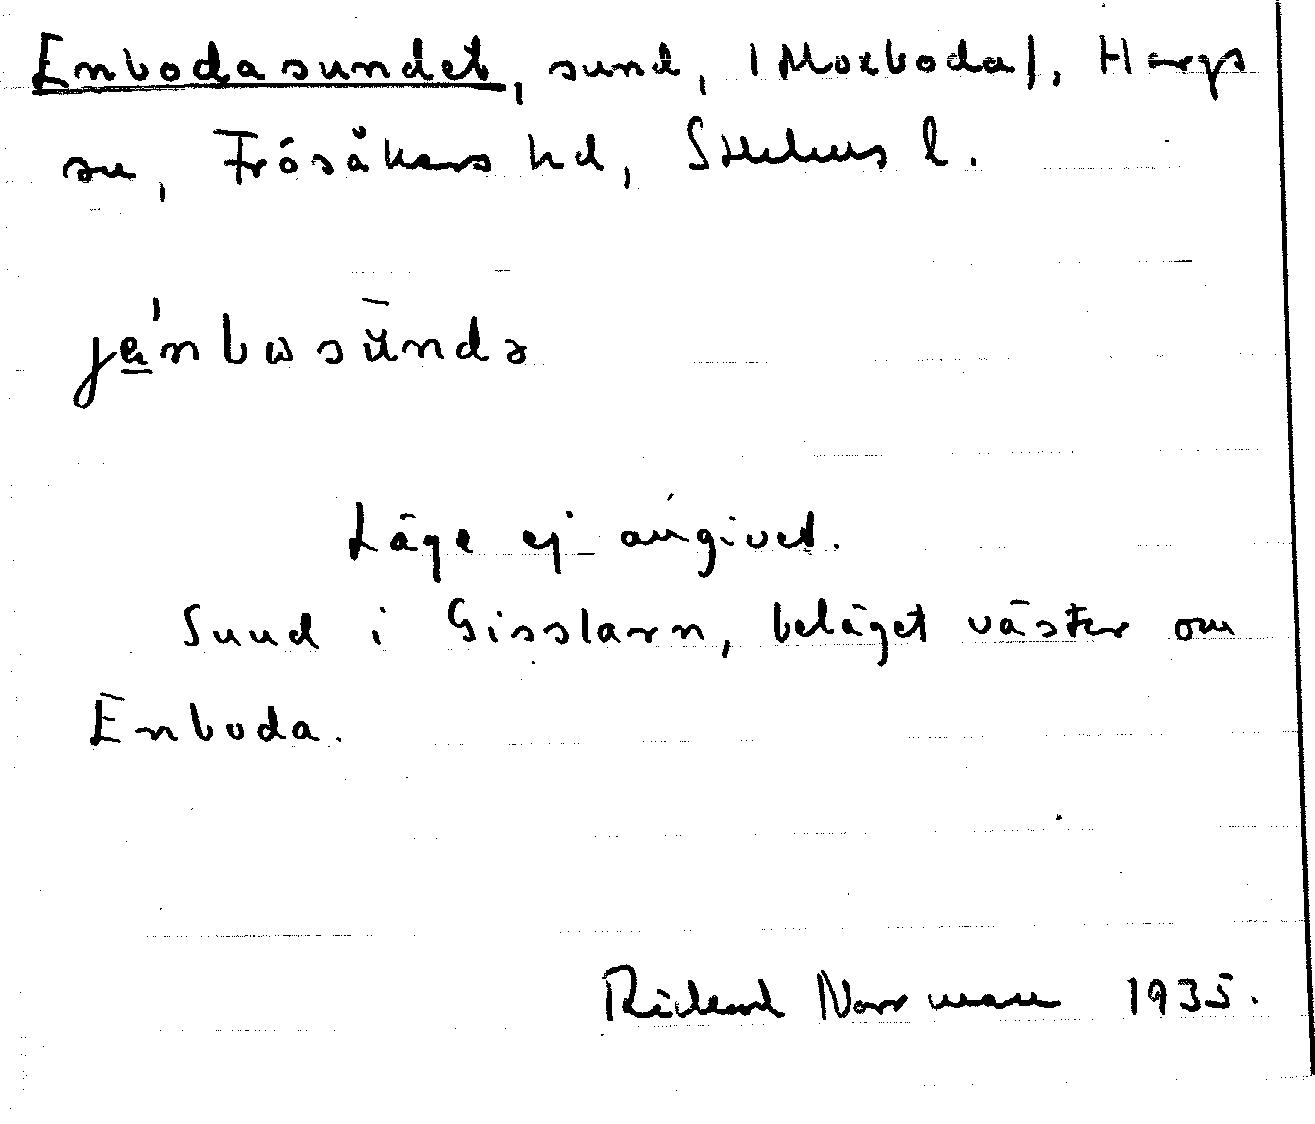 Enbodasundet, sund, (Morboda), Hargs
sn, Frösåkers hd, Sthlms l.
je̲'nbωsūndə
Läge ej angivet.
Sund i Gisslaren, beläget väster om
Enboda.
Richard Norrman 1935.